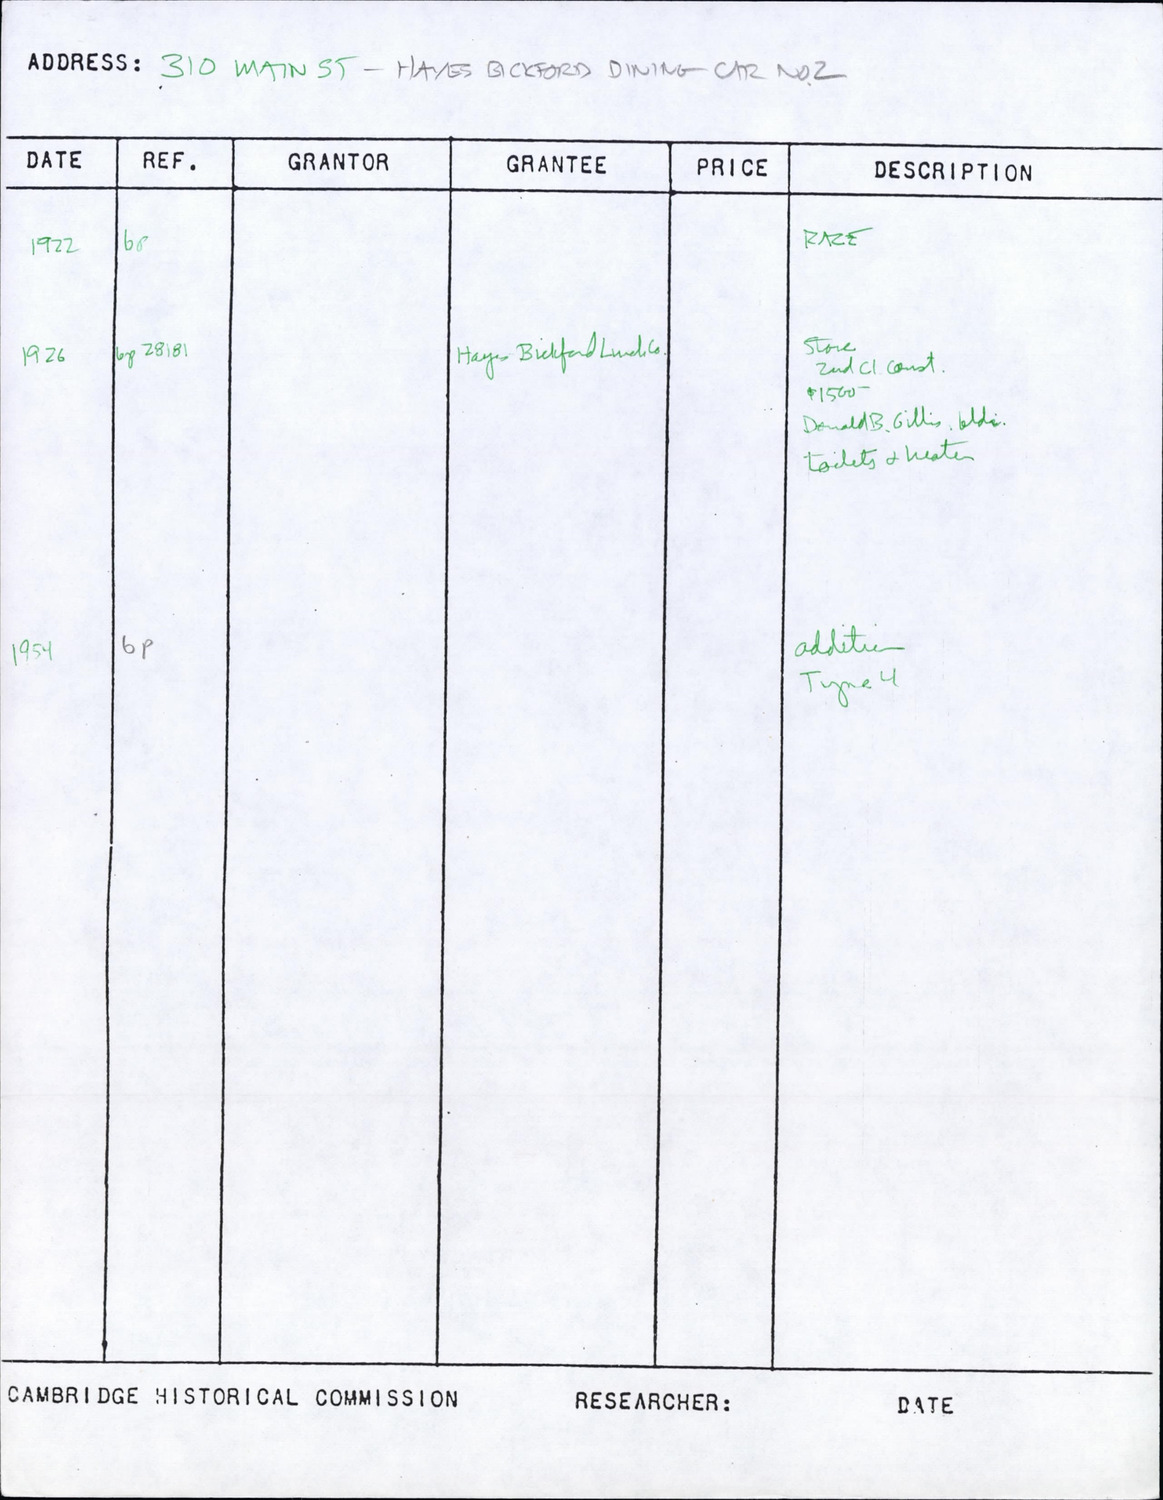 ADDRESS: 310 MAIN ST – HAYES BICKFORD DINING CAR NO. 2
DATE REF. GRANTOR GRANTEE PRICE DESCRIPTION
1922 RAZE
1926 bp 28181 Hayes Bickford Lunch Co. Store
2nd Cl. const.
$1500–
Donald B. Gillis, bldr.
toilets & heater
1954 bp addition
Type 4
CAMBRIDGE HISTORICAL COMMISSION RESEARCHER: DATE